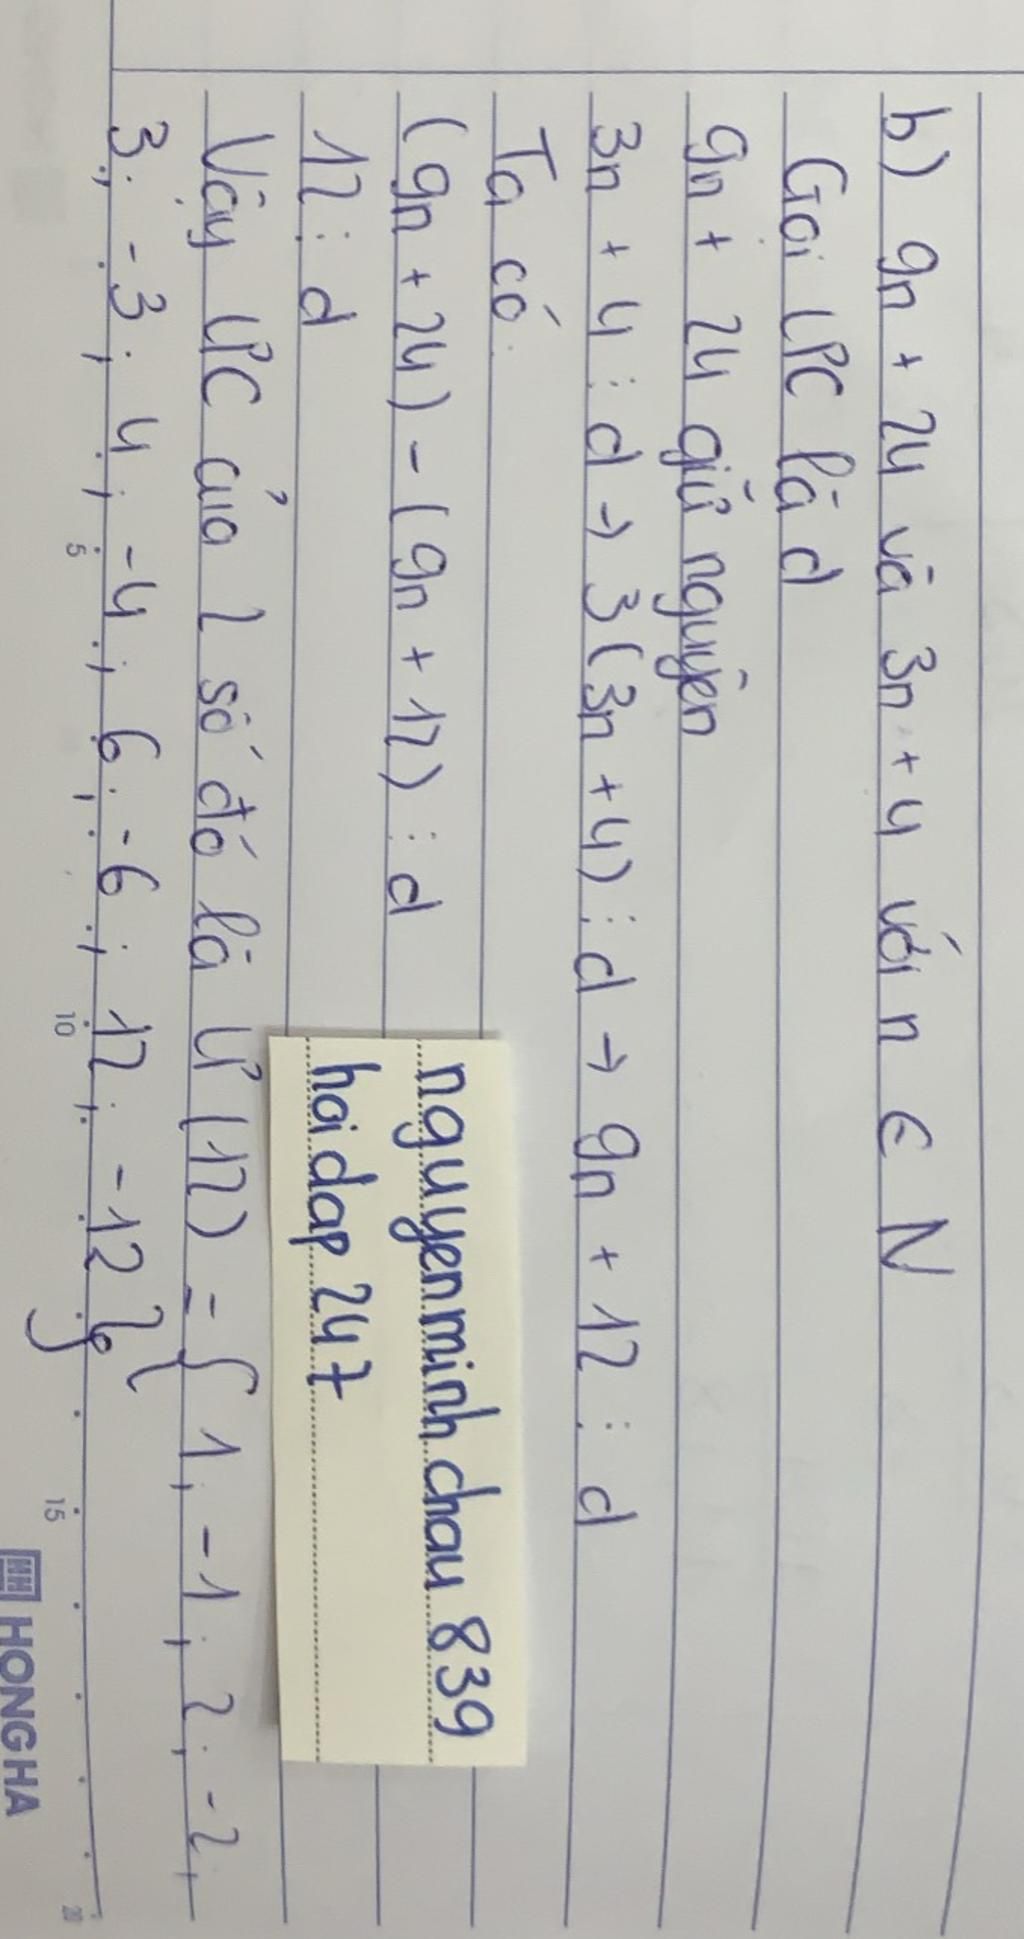 b) 9n + 24 và 3n + 4 với n ∈ N
Gọi ƯC là d
9n + 24 giữ nguyên
3n + 4 ⋮ d → 3(3n + 4) ⋮ d → 9n + 12 ⋮ d
Ta có
(9n + 24) - (9n + 12) ⋮ d
12 ⋮ d
Vậy ƯC của 2 số đó là Ư(12) = { 1; -1; 2; -2;
3; -3; 4; -4; 6; -6; 12; -12 }
nguyenminhchau 839
hoidap 247
5 10 15 20
HH HONG HA